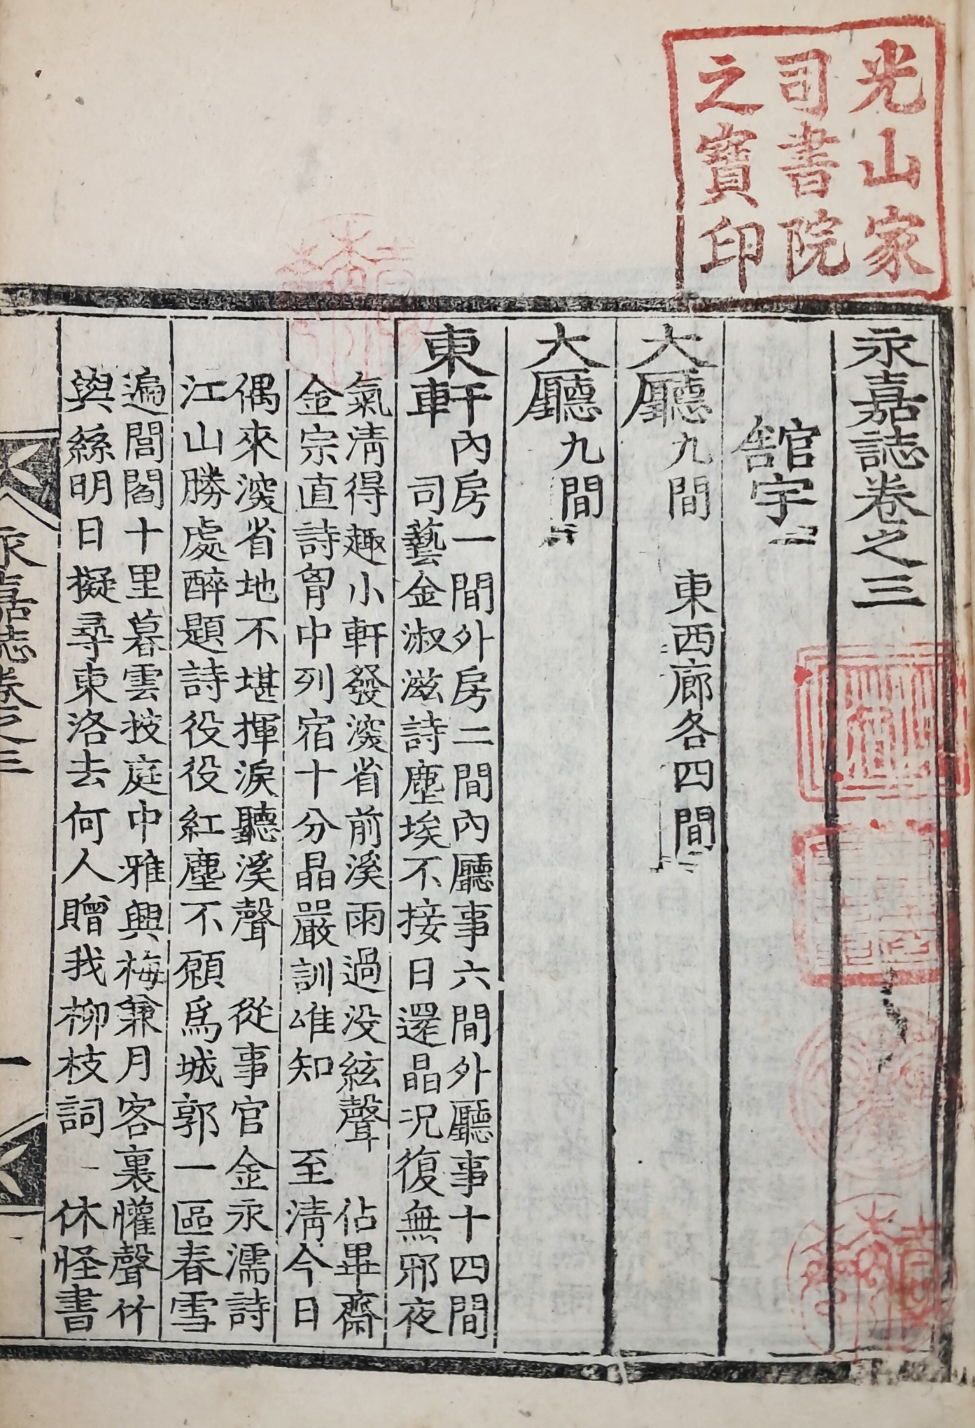 光山家
司書院
之寶印
永嘉誌卷之三
舘宇
大廳九間 東西廊各四間
大廳九間
東軒內房一間外房二間內廳事六間外廳事十四間
司藝金淑滋詩塵埃不接日還晶况復無邪夜
氣淸得趣小軒發深省前溪雨過没絃聲 佔畢齋
金宗直詩胷中列宿十分晶嚴訓唯知 至淸今日
偶來深省地不堪揮淚聽溪聲 從事官金永濡詩
江山勝處醉題詩役役紅塵不願爲城郭一區春雪
遍閭閻十里暮雲披庭中雅興梅兼月客裏懽聲竹
與絲明日擬尋東洛去何人贈我柳枝詞 休怪書
永嘉誌卷之三
一